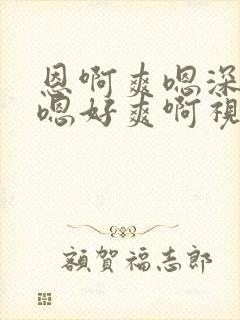 恩啊爽嗯深
嗯好爽啊視
額賀福志郎